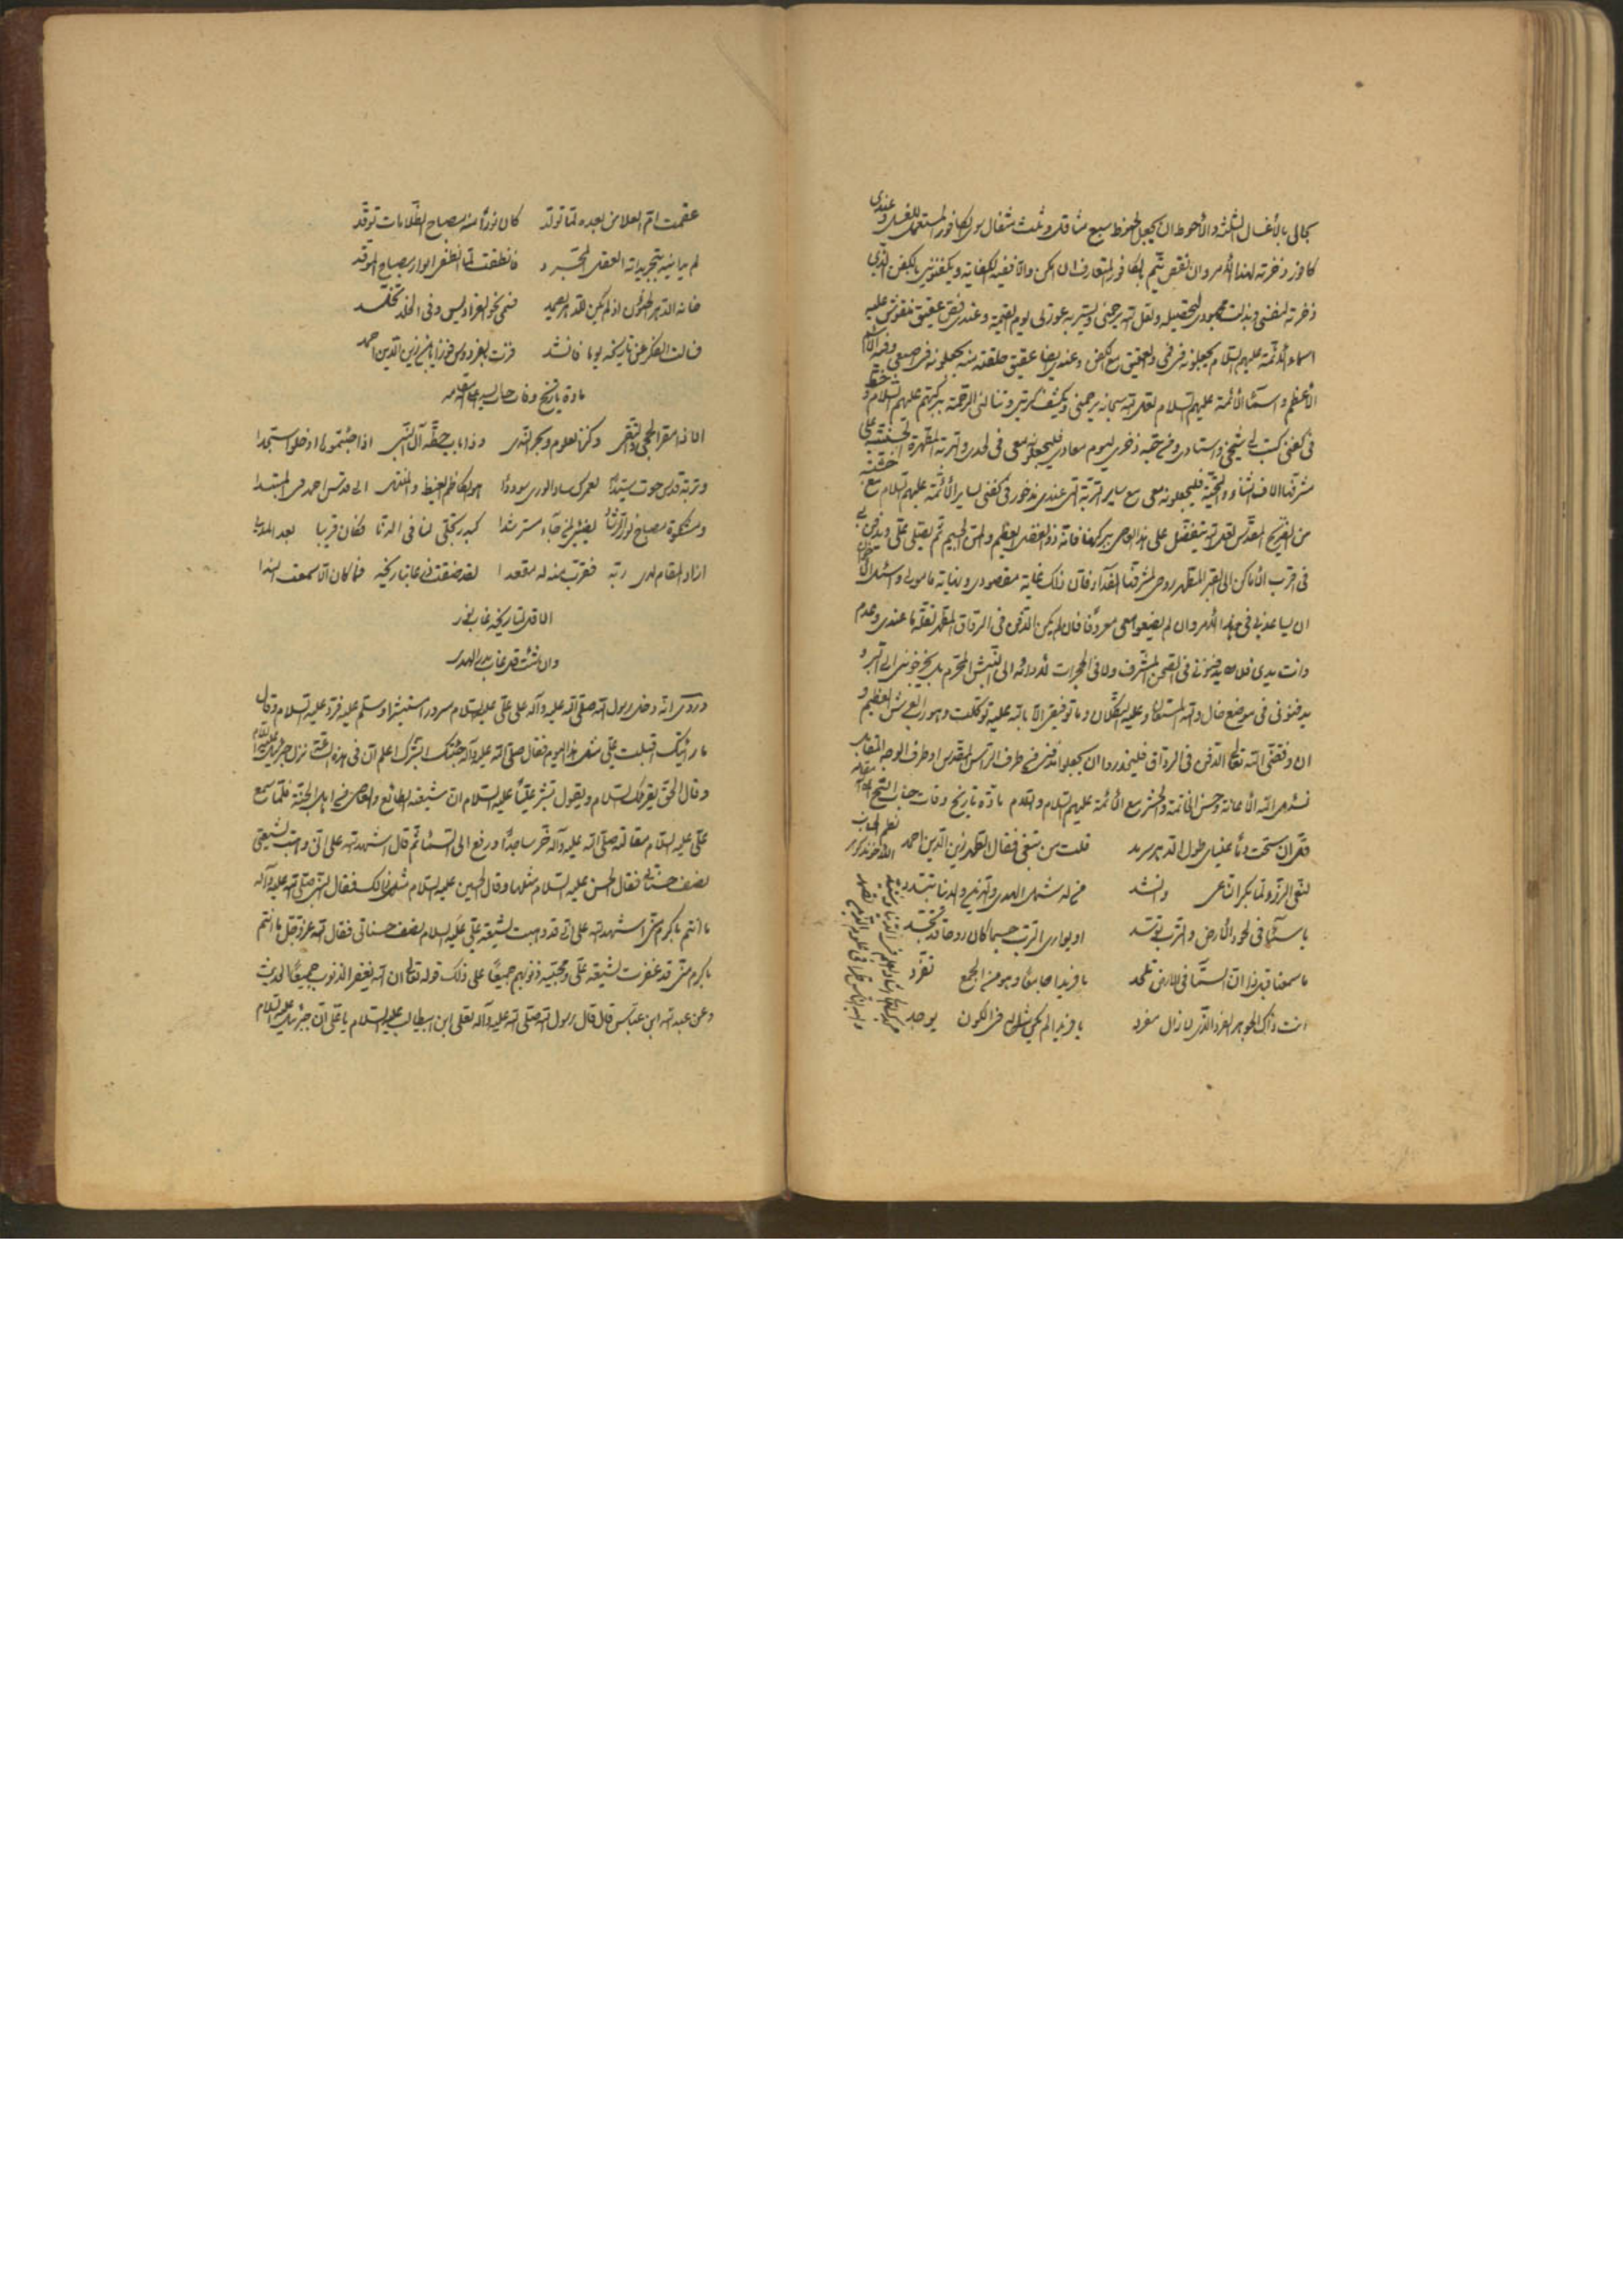 بحالي بالأغسال الثلثة والأحوط ان يجعل الحنوط سبع مثاقيل وثلث مثقال سوى الكافور المستعمل للغسل وعندي
كافور ذخرته لهذا الأمر وان نقص يتمم بالكافور المتعارف ان امكن والا ففيه الكفاية ويكفنوني بالكفن الذي
ذخرته لنفسي وبذلت مجهودي لتحصيله ولعل الله يرحمني ويستر به عورتي يوم القيمة وعندي فص عقيق منقوش عليه
اسماء الأئمة عليهم السلام يجعلونه في فمي والعقيق مع الكفن وعندي ايضا عقيق حلقته منه يجعلونه في اصبعي وفيه الاسم
الأعظم واسماء الأئمة عليهم السلام لعل الله سبحانه يرحمني ويكشف كربتي وتنالني الرحمة ببركتهم عليهم السلام و
في كفني كتب لي شيخي واستادي ذخري ليوم معادي فليجعلونه معي في لحدي والتربة المطهرة الحسينية على
مشرفها الاف الثناء والتحية فليجعلونه معي مع ساير التربة التي عندي مذخور في كفني لساير الأئمة عليهم السلام مع
من الضريح المقدس لعل الله يتفضل على هذا العاصي ببركتها فانه ذو الفضل العظيم والمن الجسيم ثم يصلي علي ويدفن بي
في اقرب الأماكن الى القبر المطهر روحي لمشرفها الفداء فان ذلك غاية مقصودي ونهاية مامولي
ان يساعدني في هذا الأمر وان لم يضيعوا سعي معروفا فان لم يكن الدفن في الرواق المطهر لقلة ما عندي وعدم
وانت يدي فلا يدفنوني في الصحن المشرف ولا في الحجرات لأدائه الى النبش المحرم بل يخرجونني الى البر و
يدفنوني في موضع خال والله المستعان وعليه التكلان وما توفيقي الا بالله عليه توكلت وهو رب العرش العظيم و
ان وفقني الله تعالى الدفن في الرواق فلينذروا ان يجعلوا قبري في طرف الراس المقدس او طرف الوجه المقابل
نسئل الله الاعانة وحسن الخاتمة والحشر مع الأئمة عليهم السلام والسلام مادة تاريخ وفات جناب الشيخ
طول الدهر سرمد قلت من تنعى فقال الطهر زين الدين احمد
يا سمآء في لحود الأرض والترب توسد او يواري الترب جسما كان روحا قد تجسد
ما سمعنا قبل ذا ان السمآء في الأرض تلحد يا فريدا جامعا وهو من الجمع تفرد
انت ذاك الجوهر الفرد الذي لا زال مفرد يا فريدا لم يكن مثله في الكون يوجد
عقمت ام العلا من بعده لما تولد كان نورا منه مصباح الظلامات توقد
لم يدانيه بتجريداته العقل المجرد فانطفت لما انطفى انوار مصباح الموقد
خانه الدهر الخؤون اذ لم يكن للدهر يحمد فنحى نحو الفراديس وفي الخلد تخلد
فسئلت الفكر عن تاريخه يوما فانشد فزت بالفردوس فوزا يا ابن زين الدين احمد
مادة تاريخ وفات جناب سيد اعلى الله مقامه
الا ذا مقر الحجى والتقى وكنز العلوم وبحر الندى وذا باب حطة آل النبي اذا جئتموها ادخلوا سجدا
وتربة قدس حوت سيدا لعمرك ساد الورى سوددا هو الكاظم الغيظ والمنتهى الى قدس احمد في المبتدا
ومشكوة مصباح نور الرشاد يضيئ لمن جآء مسترشدا كبدر تجلى لنا في الدنا فكان قريبا بعد المدى
اراد المقام لدى ربه فقرب منه له مقعدا لقد ضقت ذرعا بتاريخه فما كان الا سمعت الندا
الا قل لتاريخه غاب نور
وان شئت قل غاب بدر الهدى
وروي انه دخل رسول الله صلى الله عليه وآله على علي عليه السلام مسرورا مستبشرا وسلم عليه فرد عليه السلام وقال
ما رايتك اقبلت علي مثل هذا اليوم فقال صلى الله عليه وآله جئتك ابشرك اعلم ان في هذه الساعة نزل جبرئيل عليه السلام
وقال الحق يقرئك السلام ويقول بشر عليا عليه السلام ان شيعته الطائع والعاصي من اهل الجنة فلما سمع
علي عليه السلام مقالته صلى الله عليه وآله خر ساجدا ورفع الى السماء ثم قال اشهد الله علي اني وهبت لشيعتي
نصف حسناتي فقال الحسن عليه السلام مثلها وقال الحسين عليه السلام مثل ذلك فقال النبي صلى الله عليه وآله
ما انتم باكرم مني اشهد الله علي اني قد وهبت لشيعة علي عليه السلام نصف حسناتي فقال الله عز وجل ما انتم
باكرم مني قد غفرت لشيعة علي ومحبيه ذنوبهم جميعا على ذلك قوله تعالى ان الله يغفر الذنوب جميعا الحديث
وعن عبد الله ابن عباس قال قال رسول الله صلى الله عليه وآله لعلي ابن ابيطالب عليه السلام يا علي ان جبرئيل عليه السلام